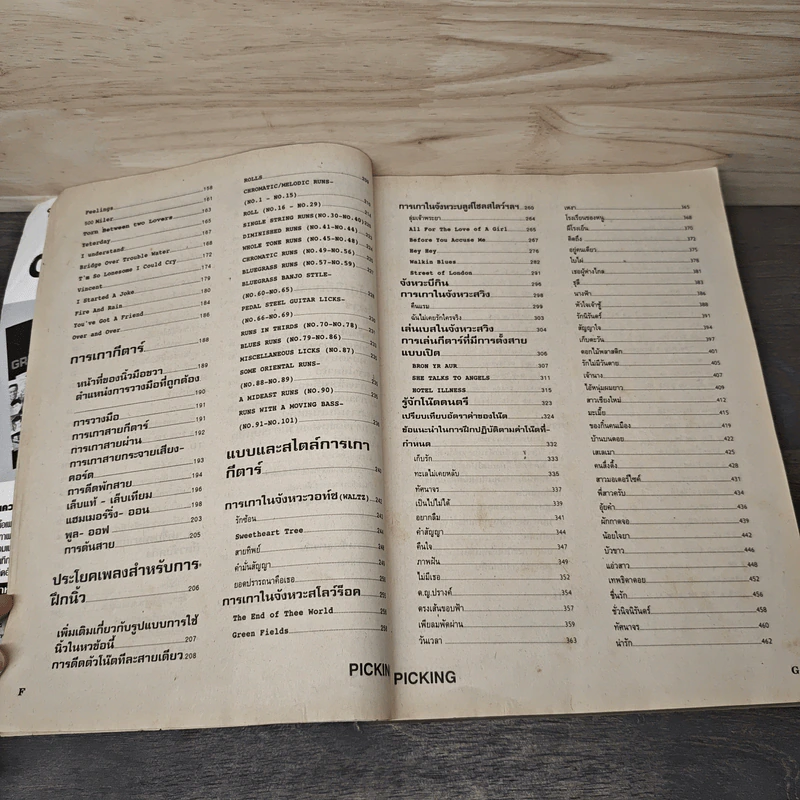 Feelings 159
500 Miler 161
Torn Between two Lovers 163
Yeterday 165
I understand 167
Bridge Over Trouble Water 168
T'm So Lonesome I Could Cry 172
Vincent 174
I Started A Joke 179
Fire And Rain 180
You've Got A Friend 184
Over and Over 186
การเกากีตาร์ 188
หน้าที่ของนิ้วมือขวา 189
ตำแหน่งการวางมือที่ถูกต้อง
การวางมือ 190
การเกาสายกีตาร์ 191
การเกาสายผ่าน 192
การเกาสายกระจายเสียง-
คอร์ด 193
การดีดพักสาย 194
เล็บแท้ - เล็บเทียม 196
แฮมเมอร์ริ่ง- ออน 198
พูล- ออฟ 203
การดันสาย 205
ประโยคเพลงสำหรับการ
ฝึกนิ้ว 206
เพิ่มเติมเกี่ยวกับรูปแบบการใช้
นิ้วในหวข้อนี้ 207
การดีดตัวโน๊ตทีละสายเดียว 208
F
ROLLS
CHROMATIC/MELODIC RUNS-
(NO.1 - NO.15)
ROLL (NO.16 - NO.29)
SINGLE STRING RUNS(NO.30-NO.40)
DIMINISHED RUNS (NO.41-NO.44)
WHOLE TONE RUNS (NO.45-NO.48)
CHROMATIC RUNS (NO.49-NO.56)
BLUEGRASS RUNS (NO.57-NO.59)
BLUEGRASS BANJO STYLE-
(NO.60-NO.65)
PEDAL STEEL GUITAR LICKS-
(NO.66-NO.69)
RUNS IN THIRDS (NO.70-NO.78)
BLUES RUNS (NO.79-NO.86)
MISCELLANEOUS LICKS (NO.87)
SOME ORIENTAL RUNS-
(NO.88-NO.89)
A MIDEAST RUNS (NO.90)
RUNS WITH A MOVING BASS-
(NO.91-NO.101)
แบบและสไตล์การเกา
กีตาร์
การเกาในจังหวะวอท์ซ(WALTZ)
รักซ้อน
Sweetheart Tree
สายทิพย์
คำมั่นสัญญา
ยอดปรารถนาคือเธอ
การเกาในจังหวะสโลว์ร็อค
The End of Thee World
Green Fields
PICKIN
การเกาในจังหวะบลูส์โซลสโลว์ฯลฯ 260
ลุ่มเจ้าพระยา 264
All For The Love of A Girl 265
Before You Accuse Me 267
Hey Hey 276
Walkin Blues 282
Street of London 291
จังหวะบีกิน 296
การเกาในจังหวะสวิง 298
คืนแรม 299
ฉันไม่เคยรักใครจริง 303
เล่นเบสในจังหวะสวิง 304
การเล่นกีตาร์ที่มีการตั้งสาย
แบบเปิด 306
BRON YR AUR 307
SHE TALKS TO ANGELS 311
HOTEL ILLNESS 315
รู้จักโน๊ตดนตรี 323
เปรียบเทียบอัตราค่าของโน๊ต 324
ข้อแนะนำในการฝึกปฏิบัติตามค่าโน๊ตที่-
กำหนด 332
เก็บรัก 333
ทะเลไม่เคยหลับ 336
ทัศนาจร 337
เป็นไปไม่ได้ 339
อยากลืม 341
คำสัญญา 344
คืนใจ 347
ภาพฝัน 349
ไม่มีเธอ 352
ด.ญ.ปรางค์ 354
ตรงเส้นขอบฟ้า 357
เพียงลมพัดผ่าน 359
วันเวลา 363
PICKING
เหงา 365
โรงเรียนของหนู 368
มีโรคเอ็น 370
คิดถึง 373
อยู่คนเดียว 375
ใบไผ่ 378
เธอผู้ห่างไกล 381
ชูลี่ 383
นางฟ้า 386
หัวใจเจ้าชู้ 388
รักนิรันดร์ 391
สัญญาใจ 394
เก็บตะวัน 397
ดอกไม้พลาสติก 401
รักไม่มีวันตาย 405
เจ้านาง 407
ไอ้หนุ่มผมยาว 409
สาวเชียงใหม่ 412
มะเมี้ยะ 415
ของกิ๋นคนเมือง 419
บ้านบนดอย 422
เสเลเมา 425
คนสึ่งตึง 428
สาวมอเตอร์ไซค์ 431
พี่สาวครับ 434
อุ๊ยคำ 436
ผักกาดจอ 439
น้อยใจยา 442
บัวขาว 446
แอ่วสาว 448
เทพธิดาดอย 452
ชื่นรัก 456
ชั่วนิจนิรันดร์ 458
ทัศนาจร 460
น่ารัก 462
G